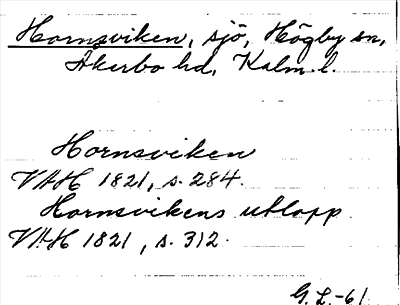 Hornsviken, sjö, Högby sn,
Åkerbo hd, Kalm. l.
Hornsviken
VAH 1821, s. 284.
Hornsvikens utlopp
VAH 1821, s. 312.
G. L.-61